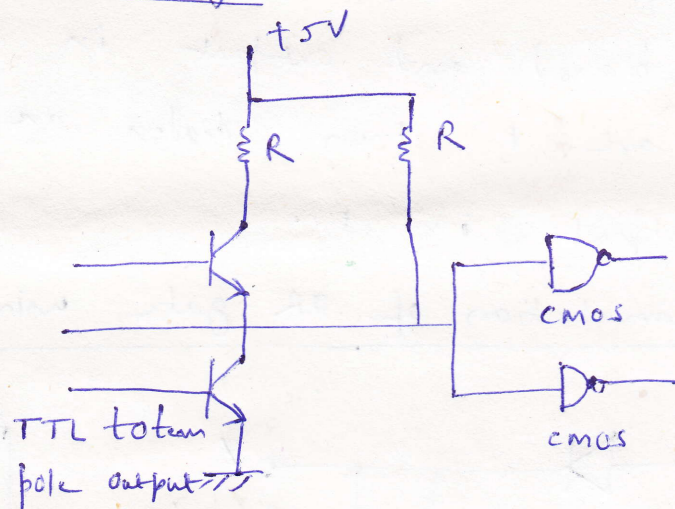 +5V
R
R
CMOS
CMOS
TTL totem
pole output